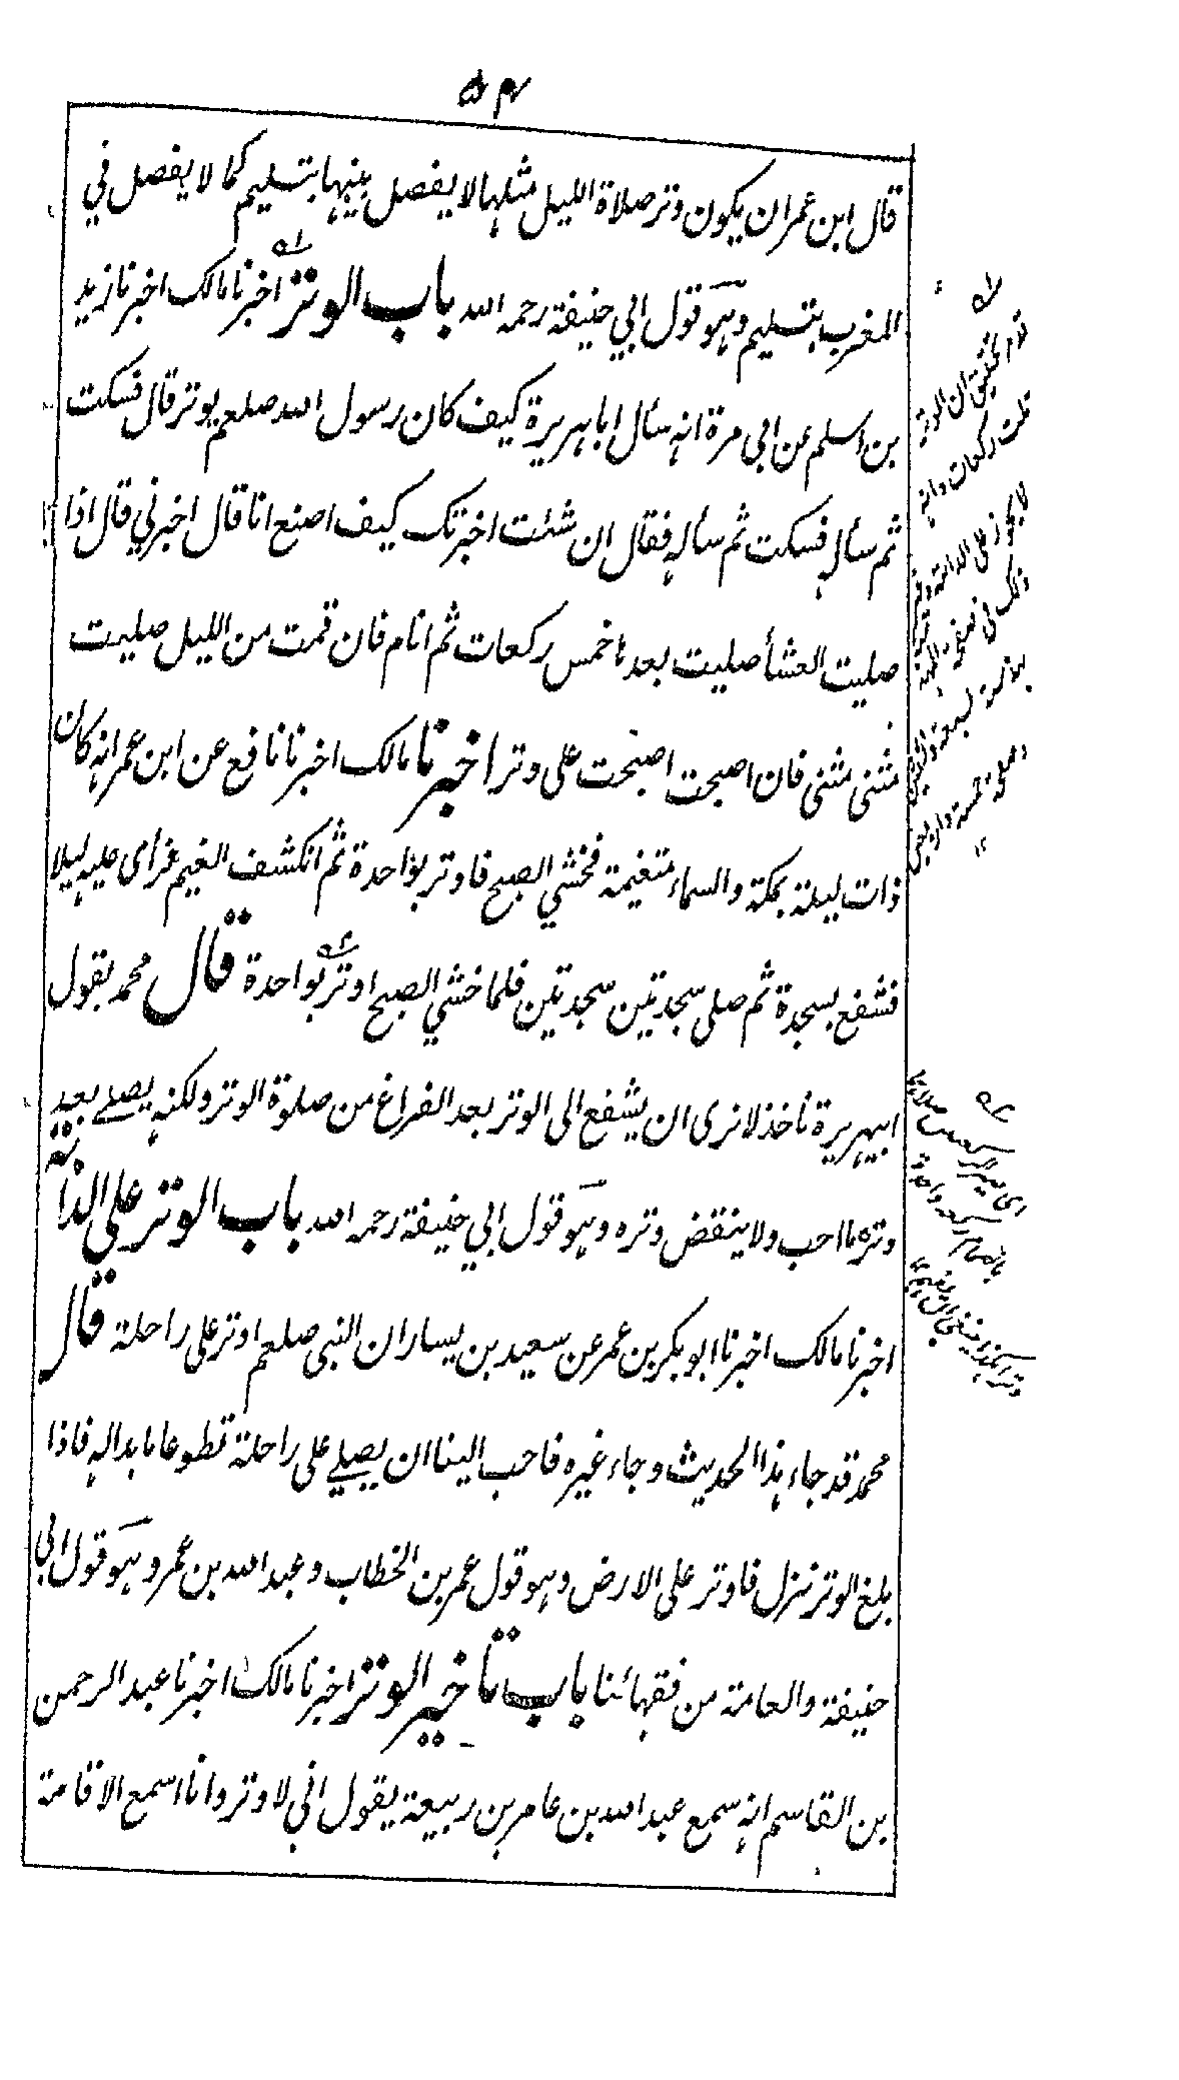 ۵۴
قال ابن عمران يكون وتر صلاة الليل مثلها لا يفصل بينها بتسليم كما لا يفصل في
المغرب بتسليم وهو قول ابي حنيفة رحمه الله باب الوتر اخبرنا مالك اخبرنا زيد
بن اسلم عن ابي مرة انه سأل ابا هريرة كيف كان رسول الله صلعم يوتر قال فسكت
ثم سأله فسكت ثم سأله فقال ان شئت اخبرتك كيف اصنع انا قال اخبرني قال اذا
صليت العشأ صليت بعدها خمس ركعات ثم انام فان قمت من الليل صليت
مثنى مثنى فان اصبحت اصبحت على وتر اخبرنا مالك اخبرنا نافع عن ابن عمر انه كان
ذات ليلة بمكة والسماء متغيمة فخشي الصبح فاوتر بواحدة ثم انكشف الغيم فرأى عليه ليلا
فشفع بسجدة ثم صلى سجدتين سجدتين فلما خشي الصبح اوتر بواحدة قال محمد بقول
ابي هريرة نأخذ لا نرى ان يشفع الى الوتر بعد الفراغ من صلوة الوتر ولكنه يصلے بعد
وتره ما احب ولا ينقض وتره وهو قول ابي حنيفة رحمه الله باب الوتر على الدابة
اخبرنا مالك اخبرنا ابو بكر بن عمر عن سعيد بن يسار ان النبي صلعم اوتر على راحلة قال
محمد قد جاء هذا الحديث وجاء غيره فاحب الينا ان يصلے على راحلة تطوعا ما بدا له فاذا
بلغ الوتر نزل فاوتر على الارض وهو قول عمر بن الخطاب وعبد الله بن عمر وهو قول ابي
حنيفة والعامة من فقهائنا باب تأخير الوتر اخبرنا مالك اخبرنا عبد الرحمن
بن القاسم انه سمع عبد الله بن عامر بن ربيعة يقول اني لاوتر وانا اسمع الاقامة